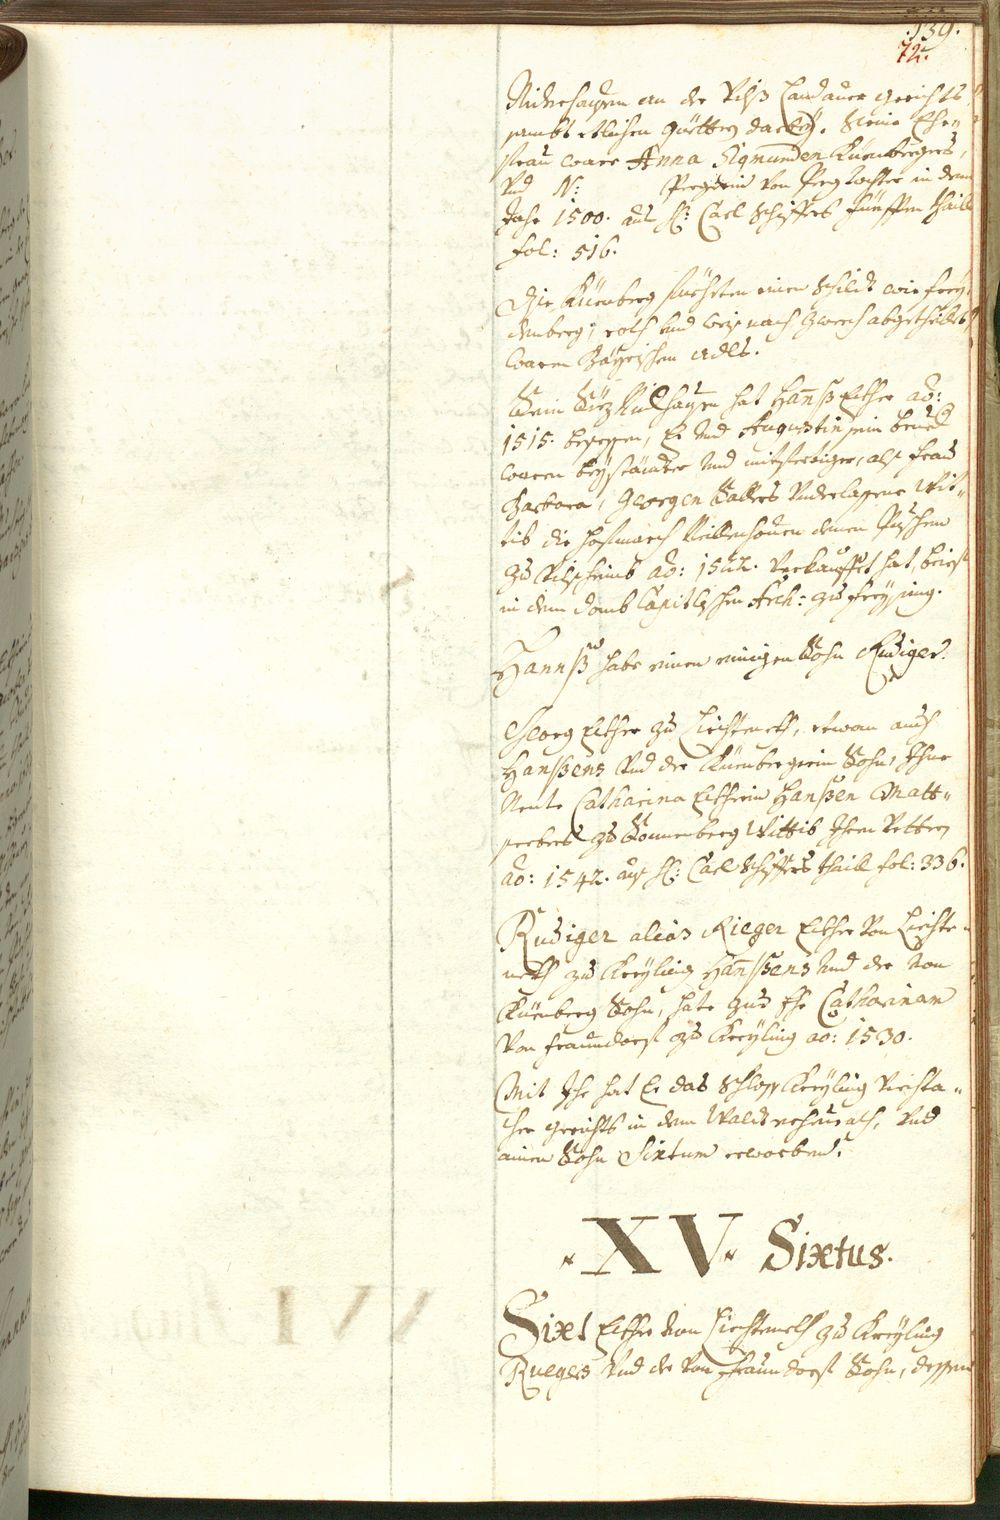 139.
72.
Nidrhausen an der Vilß Landauer gerichts
sambt etlichen güettern darbey. Seine Ehe„
frau ware Anna Sigmunden Küenbergers,
Vnd N: Pergerin von Perg tochter in dem
Jahr 1500. auß H: Carl Schiffers fünfften thaill
fol: 516.
Die Küenberg fuehrten einen Schildt wie frey„
denberg, roth und weiß nach zwerch abgetheilt
waren Bayrischen adls.
hat Hannß Ether ao:
1515. besessen, Er Vnd Augustin sein brued
waren beyständer Vnd mitsiegler, als frau
Barbara, Georgen Vnderlassene Wit„
tib die hofmarch denen
zu ao: 1522. Verkauffet hat, brief
in dem domb Capitlschen Arch: zu freysing.
Hannß habe einen einigen Sohn Rudiger.
Georg Ether zu Liechtenekh, etwan auch
Hanßens Vnd der Küenbergerin Sohn, Ihne
Nente Catharina Etherin Hanßen Matt„
seebers zu Sonnenberg Wittib Ihren Vettern
ao: 1542. auß H: Carl Schiffers thaill fol: 336.
Rudiger alias Rieger Ether Von Liechte„
nekh zu Kreyling Hanßens Vnd der Von
Küenberg Sohn, hate zur Ehe Catharinam
Von fraundorf zu Kreyling ao: 1530.
Mit Ihr hat Er das Schloss Kreyling Viechta„
cher gerichts in dem Waldt erheurath, Vnd
ainen Sohn Sixtum erworben.
XV Sixtus.
Sixt Ether Von Liechtenekh zu Kreyling
Ruegers Vnd der Von Fraundorf Sohn, dessen